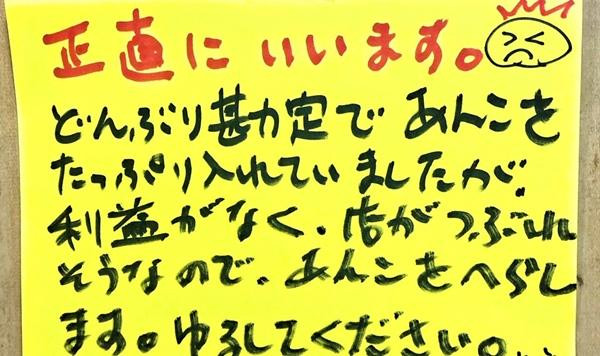 正直にいいます。
どんぶり勘定であんこを
たっぷり入れていましたが、
利益がなく、店がつぶれ
そうなので、あんこをへらし
ます。ゆるしてください。